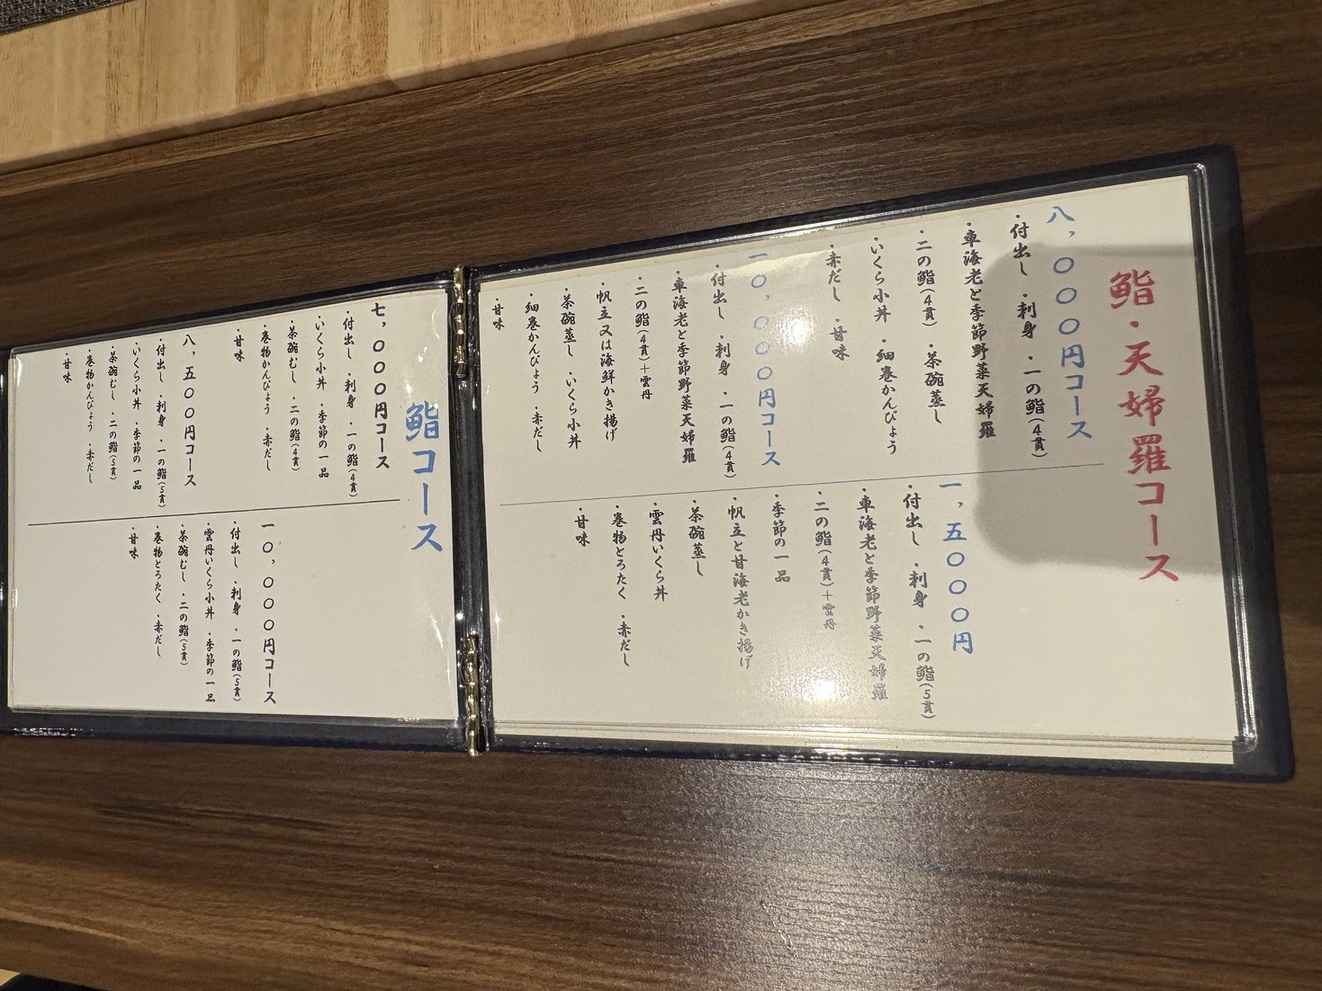 鮨・天婦羅コース
八,〇〇〇円コース
・付出し ・刺身 ・一の鮨(4貫)
・車海老と季節野菜天婦羅
・二の鮨(4貫) ・茶碗蒸し
・いくら小丼 ・細巻かんぴょう
・赤だし ・甘味
一〇,〇〇〇円コース
・付出し ・刺身 ・一の鮨(4貫)
・車海老と季節野菜天婦羅
・二の鮨(4貫)+雲丹
・帆立又は海鮮かき揚げ
・茶碗蒸し ・いくら小丼
・細巻かんぴょう ・赤だし
・甘味
一,五〇〇〇円
・付出し ・刺身 ・一の鮨(5貫)
・車海老と季節野菜天婦羅
・二の鮨(4貫)+雲丹
・季節の一品
・帆立と甘海老かき揚げ
・茶碗蒸し
・雲丹いくら丼
・巻物とろたく ・赤だし
・甘味
鮨コース
七,〇〇〇円コース
・付出し ・刺身 ・一の鮨(4貫)
・いくら小丼 ・季節の一品
・茶碗むし ・二の鮨(4貫)
・巻物かんぴょう ・赤だし
・甘味
八,五〇〇円コース
・付出し ・刺身 ・一の鮨(5貫)
・いくら小丼 ・季節の一品
・茶碗むし ・二の鮨(5貫)
・巻物かんぴょう ・赤だし
・甘味
一〇,〇〇〇円コース
・付出し ・刺身 ・一の鮨(5貫)
・雲丹いくら小丼 ・季節の一品
・茶碗むし ・二の鮨(5貫)
・巻物とろたく ・赤だし
・甘味